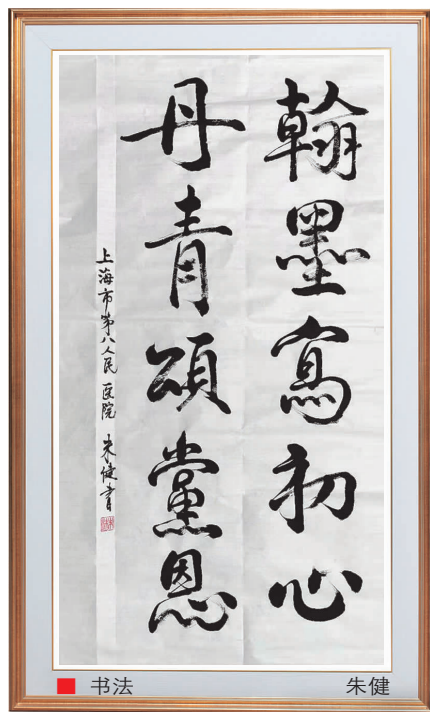 翰墨寫初心
丹青頌黨恩
上海市第八人民医院 朱健書
书法 朱健